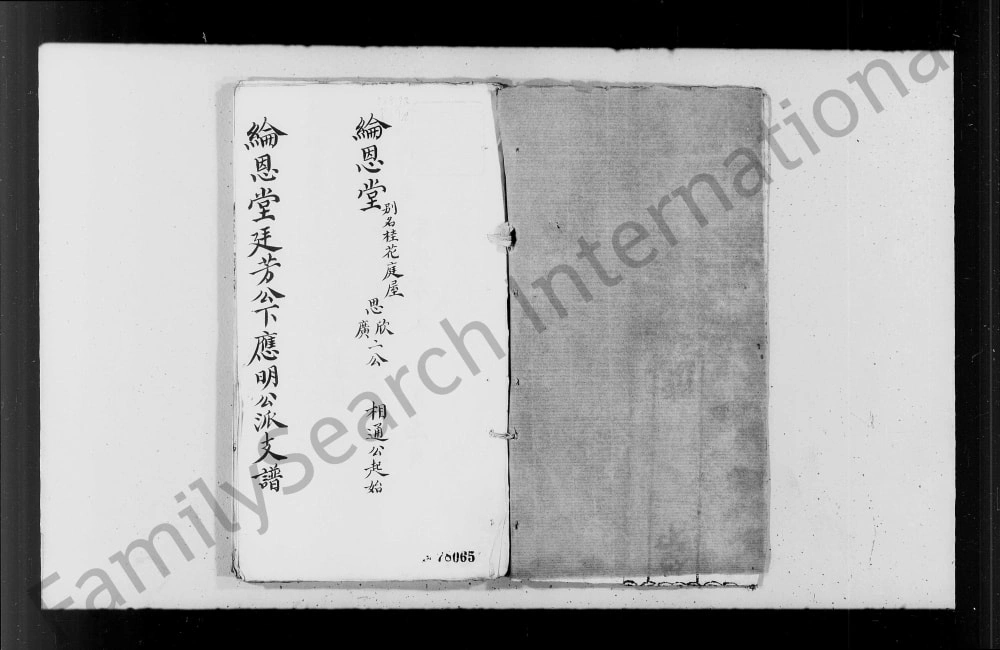 綸恩堂
別名桂花庭屋
思
欣
廣
二公
相通公起始
綸恩堂廷芳公下應明公派支譜
FamilySearch International